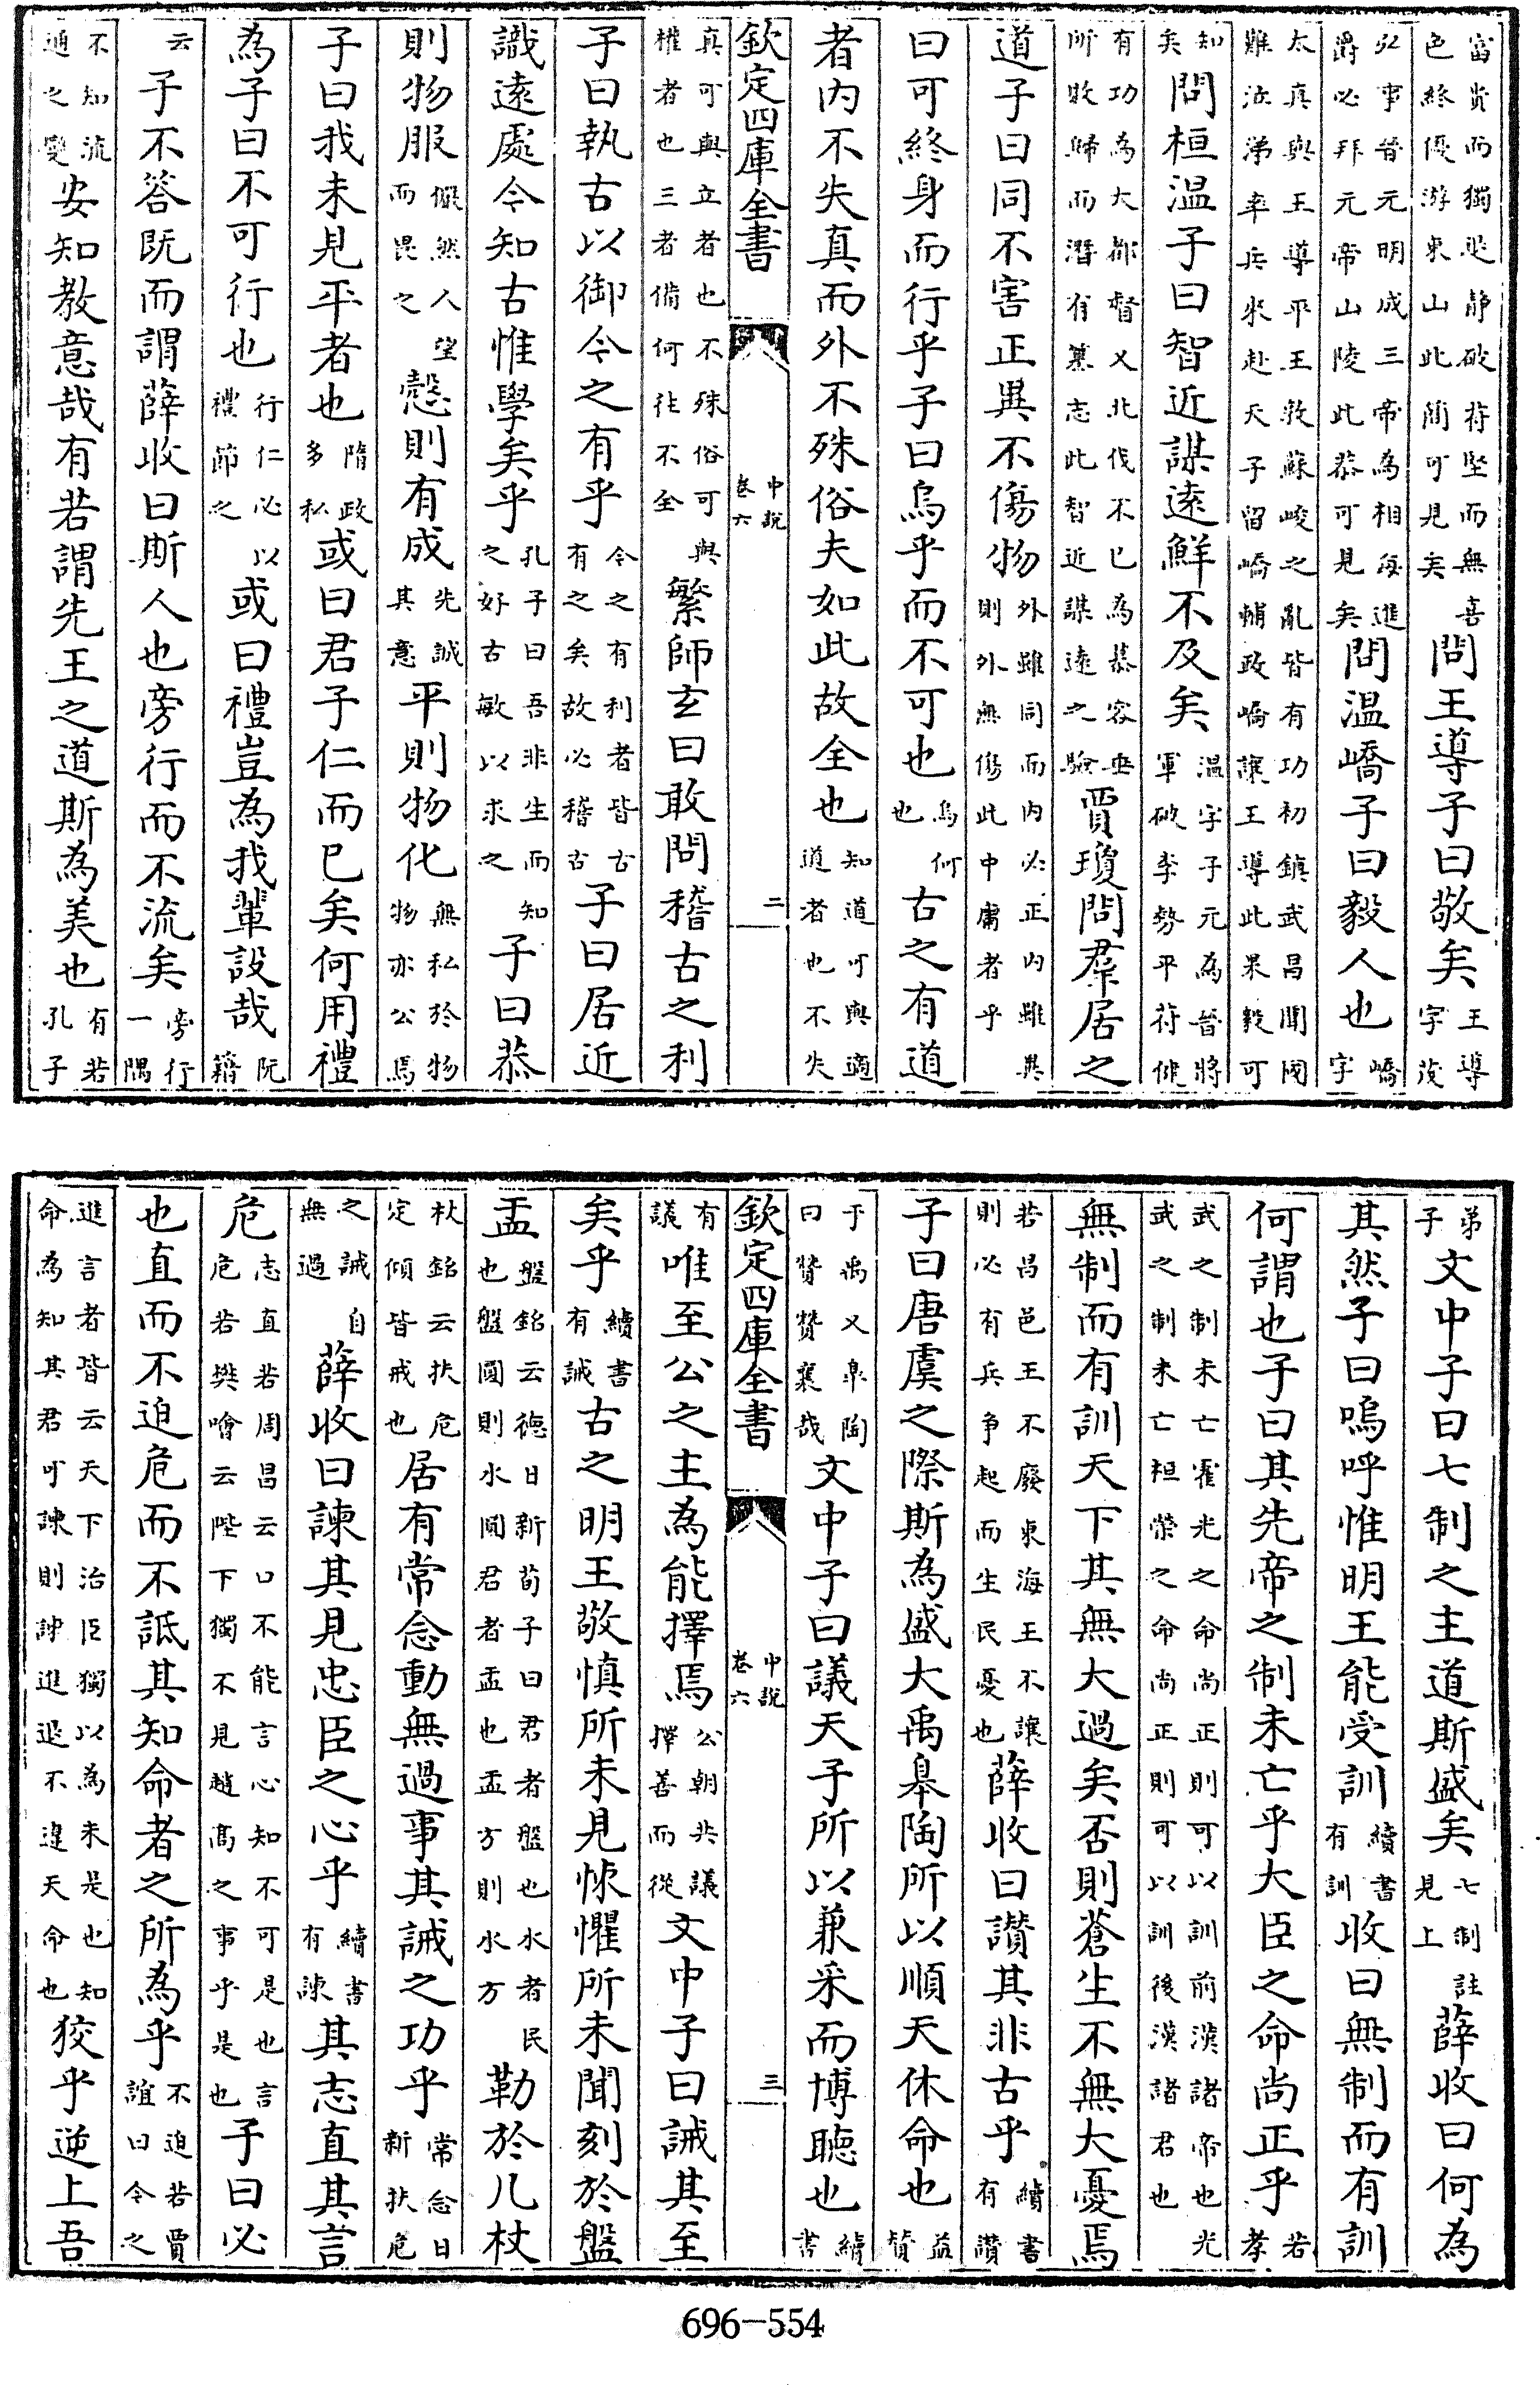 富貴而獨退靜破苻堅而無喜色終優游東山此簡可見矣問王導子曰敬矣王導字茂
弘事晉元明成三帝為相每進爵必拜元帝山陵此恭可見矣問温嶠子曰毅人也嶠字
太真與王導平王敦蘇峻之亂皆有功初鎮武昌聞國難泣涕率兵來赴天子留嶠輔政嶠讓王導此果毅可
知矣問桓温子曰智近謀遠鮮不及矣温字子元為晉將軍破李勢平苻健
有功為大都督又北伐不已為慕容垂所敗歸而潛有簒志此智近謀遠之驗賈瓊問羣居之
道子曰同不害正異不傷物外雖同而内必正内雖異則外無傷此中庸者乎
曰可終身而行乎子曰烏乎而不可也烏何也古之有道
者内不失真而外不殊俗夫如此故全也知道可與適道者也不失
欽定四庫全書 中說卷六 二
真可與立者也不殊俗可與權者也三者備何往不全繁師玄曰敢問稽古之利
子曰執古以御今之有乎今之有利者皆古有之矣故必稽古子曰居近
識遠處今知古惟學矣乎孔子曰吾非生而知之好古敏以求之子曰恭
則物服儼然人望而畏之慤則有成先誠其意平則物化無私於物物亦公焉
子曰我未見平者也隋政多私或曰君子仁而已矣何用禮
為子曰不可行也行仁必以禮節之或曰禮豈為我輩設哉阮籍
云子不答既而謂薛收曰斯人也旁行而不流矣旁行一隅
不知流通之變安知教意哉有若謂先王之道斯為美也有若孔子
弟子文中子曰七制之主道斯盛矣七制註見上薛收曰何為
其然子曰嗚呼惟明王能受訓續書有訓收曰無制而有訓
何謂也子曰其先帝之制未亡乎大臣之命尚正乎若孝
武之制未亡霍光之命尚正則可以訓前漢諸帝也光武之制未亡桓榮之命尚正則可以訓後漢諸君也
無制而有訓天下其無大過矣否則蒼生不無大憂焉
若昌邑王不廢東海王不讓則必有兵爭起而生民憂也薛收曰讃其非古乎續書有讃
子曰唐虞之際斯為盛大禹臯陶所以順天休命也益贊
于禹又臯陶曰贊贊襄哉文中子曰議天子所以兼采而博聽也續書
欽定四庫全書 中說卷六 三
有議唯至公之主為能擇焉公朝共議擇善而從文中子曰誡其至
矣乎續書有誡古之明王敬慎所未見悚懼所未聞刻於盤
盂盤銘云德日新荀子曰君者盤也水者民也盤圓則水圓君者盂也盂方則水方勒於几杖
杖銘云扶危定傾皆戒也居有常念動無過事其誡之功乎常念日新扶危
之誡自無過薛收曰諫其見忠臣之心乎續書有諫其志直其言
危志直若周昌云口不能言心知不可是也言危若樊噲云陛下獨不見趙高之事乎是也子曰必
也直而不迫危而不詆其知命者之所為乎不迫若賈誼曰今之
進言者皆云天下治臣獨以為未是也知命為知其君可諫則諫進退不違天命也狡乎逆上吾
696-554